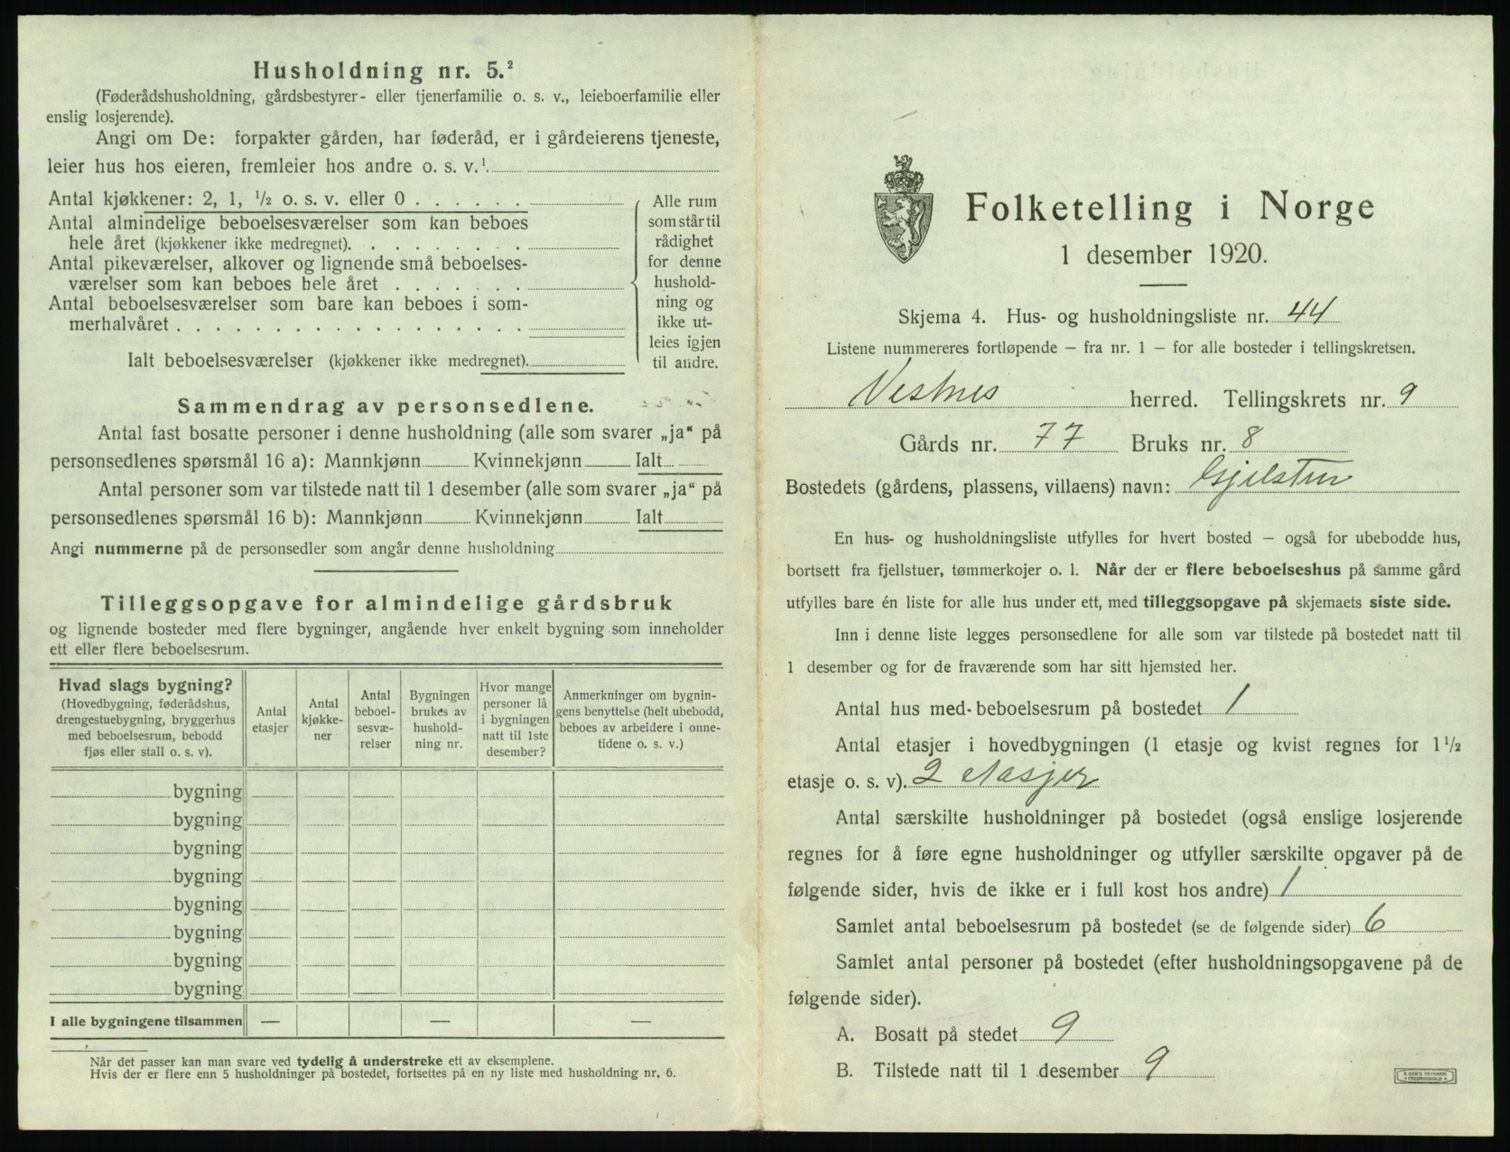 Husholdning nr. 5.²
(Føderådshusholdning, gårdsbestyrer- eller tjenerfamilie o. s. v., leieboerfamilie eller
enslig losjerende).
Angi om De: forpakter gården, har føderåd, er i gårdeierens tjeneste,
leier hus hos eieren, fremleier hos andre o. s. v.¹
Antal kjøkkener: 2, 1, ½ o. s. v. eller 0 . . . . . .
Antal almindelige beboelsesværelser som kan beboes
hele året (kjøkkener ikke medregnet). . . . . . . .
Antal pikeværelser, alkover og lignende små beboelses-
værelser som kan beboes hele året . . . . . . .
Antal beboelsesværelser som bare kan beboes i som-
merhalvåret . . . . . . . . . . . . . . . . .
Ialt beboelsesværelser (kjøkkener ikke medregnet).
Alle rum
som står til
rådighet
for denne
hushold-
ning og
ikke ut-
leies igjen
til andre.
Sammendrag av personsedlene.
Antal fast bosatte personer i denne husholdning (alle som svarer „ja“ på
personsedlenes spørsmål 16 a): Mannkjønn Kvinnekjønn Ialt
Antal personer som var tilstede natt til 1 desember (alle som svarer „ja“ på
personsedlenes spørsmål 16 b): Mannkjønn Kvinnekjønn Ialt
Angi nummerne på de personsedler som angår denne husholdning
Tilleggsopgave for almindelige gårdsbruk
og lignende bosteder med flere bygninger, angående hver enkelt bygning som inneholder
ett eller flere beboelsesrum.
Hvad slags bygning?
(Hovedbygning, føderådshus,
drengestuebygning, bryggerhus
med beboelsesrum, bebodd
fjøs eller stall o. s. v).
Antal
etasjer
Antal
kjøkke-
ner
Antal
beboel-
sesvæ-
relser
Bygningen
brukes av
hushold-
ning nr.
Hvor mange
personer lå
i bygningen
natt til 1ste
desember?
Anmerkninger om bygnin-
gens benyttelse (helt ubebodd,
beboes av arbeidere i onne-
tidene o. s. v.)
bygning
bygning
bygning
bygning
bygning
bygning
bygning
bygning
I alle bygningene tilsammen — — —
Når det passer kan man svare ved tydelig å understreke ett av eksemplene.
Hvis der er flere enn 5 husholdninger på bostedet, fortsettes på en ny liste med husholdning nr. 6.
Folketelling i Norge
1 desember 1920.
Skjema 4. Hus- og husholdningsliste nr. 44
Listene nummereres fortløpende – fra nr. 1 – for alle bosteder i tellingskretsen.
Vestnes herred. Tellingskrets nr. 9
Gårds nr. 77 Bruks nr. 8
Bostedets (gårdens, plassens, villaens) navn: Gjelsten
En hus- og husholdningsliste utfylles for hvert bosted – også for ubebodde hus,
bortsett fra fjellstuer, tømmerkojer o. l. Når der er flere beboelseshus på samme gård
utfylles bare én liste for alle hus under ett, med tilleggsopgave på skjemaets siste side.
Inn i denne liste legges personsedlene for alle som var tilstede på bostedet natt til
1 desember og for de fraværende som har sitt hjemsted her.
Antal hus med beboelsesrum på bostedet 1
Antal etasjer i hovedbygningen (1 etasje og kvist regnes for 1½
etasje o. s. v). 2 etasjer
Antal særskilte husholdninger på bostedet (også enslige losjerende
regnes for å føre egne husholdninger og utfyller særskilte opgaver på de
følgende sider, hvis de ikke er i full kost hos andre) 1
Samlet antal beboelsesrum på bostedet (se de følgende sider) 6
Samlet antal personer på bostedet (efter husholdningsopgavene på de
følgende sider).
A. Bosatt på stedet 9
B. Tilstede natt til 1 desember 9